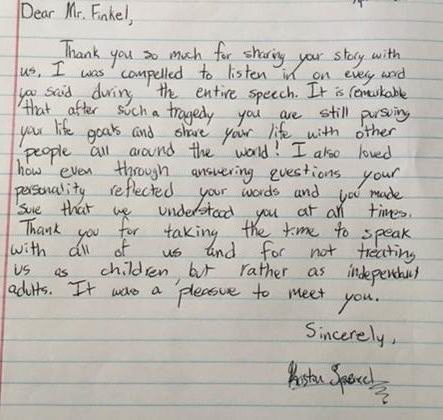 Dear Mr. Finkel,
Thank you so much for sharing your story with
us. I was compelled to listen in on every word
you said during the entire speech. It is remarkable
that after such a tragedy you are still pursuing
your life goals and share your life with other
people all around the world! I also loved
how even through answering questions your
personality reflected your words and you made
sure that we understood you at all times.
Thank you for taking the time to speak
with all of us and for not treating
us as children, but rather as independent
adults. It was a pleasure to meet you.
Sincerely,